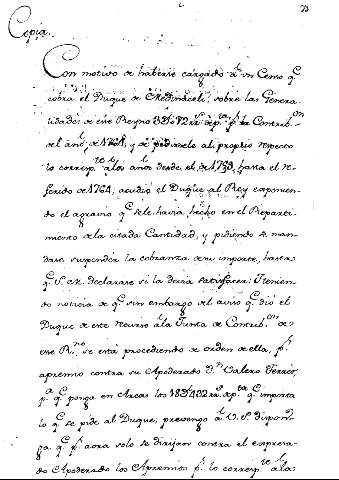 Copia.
Con motivo de haberse cargado al un Censo q.e
cobra el Duque de Medinaceli, sobre las Genera
lidades de ese Reyno p.a la Contrib.on
del año de 1764, y de pedirsele al proprio respecto
lo corresp.te a los años desde el de 1739, hasta el re
ferido de 1764, acudio el Duque al Rey exponien
do el agravio q.e se le havia hecho en el Reparti
miento de la citada Cantidad, y pidiendo se man
dase suspender la cobranza de su importe, hasta
q.e S. M. declarase si la devia satisfacer: I tenien
do noticia de q.e sin embargo del aviso q.e dió el
Duque de este recurso à la Junta de Contrib.on de
ese R.no se está procediendo de orden de ella, p.r
apremio contra su Apoderado D.n Valero Ferrer,
p.a q.e ponga en Arcas los q.e importa
lo q.e se pide al Duque, prevengo à V. S. dispon
ga q.e p.r aora solo se dirijan contra el expresa
do Apoderado los Apremios p.r lo corresp.te à la